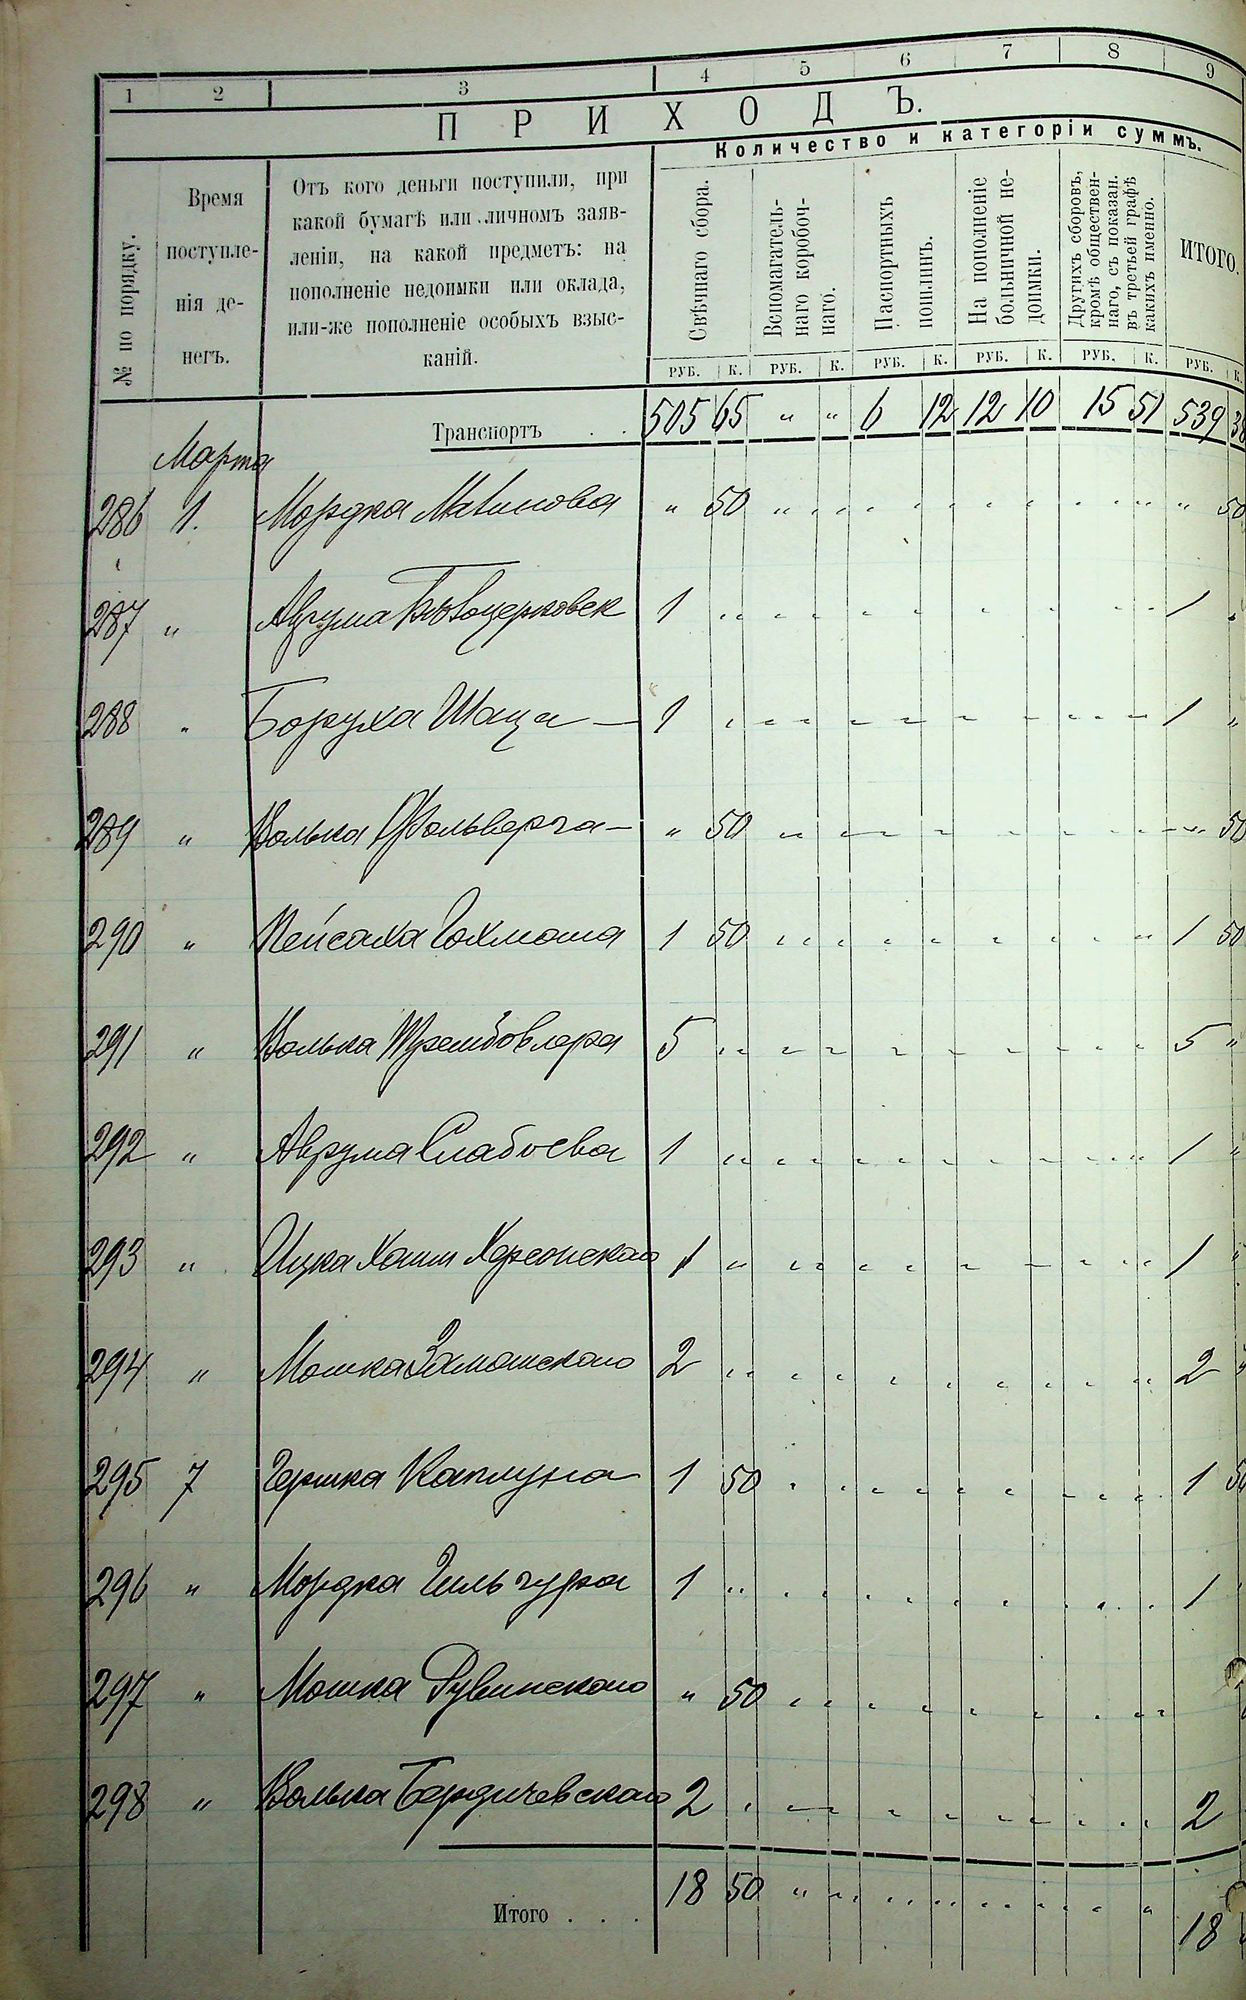 1 2 3 4 5 6 7 8 9
ПРИХОДЪ.
Количество и категорiи суммъ.
№ по порядку.
Время
поступле-
нiя де-
негъ.
Отъ кого деньги поступили, при
какой бумагѣ или личномъ заяв-
ленiи, на какой предметъ: на
пополненiе недоимки или оклада,
или-же пополненiе особыхъ взыс-
канiй.
Свѣчнаго сбора.
Вспомагатель-
наго коробоч-
наго.
Паспортныхъ
пошлинъ.
На пополненiе
больничной не-
доимки.
Другихъ сборовъ,
кромѣ обществен-
наго, съ показан.
въ третьей графѣ
какихъ именно.
ИТОГО.
РУБ. К. РУБ. К. РУБ. К. РУБ. К. РУБ. К. РУБ. К.
Транспортъ . . 505 65 " " 6 12 12 10 15 51 539 38
Марта
286 1. Мордка " 50 " 50
287 " Аврума Бѣлоцерковск 1 " 1 "
288 " Боруха Шаца — 1 " 1 "
289 " Волька Фольверга — " 50 " 50
290 " Пейсаха Гохмана 1 50 1 50
291 " Волька 5 " 5 "
292 " Аврума Слабоева 1 " 1 "
293 " Ицка Хаим Херсонскаго 1 " 1 "
294 " Мошка Замошскаго 2 " 2 "
295 7 Гершка Каплуна 1 50 1 50
296 " Мордка Гильчура 1 " 1
297 " Мошка Рувинскаго " 50
298 " Волька Бердичевскаго 2 " 2
Итого . . . 18 50 " " 18